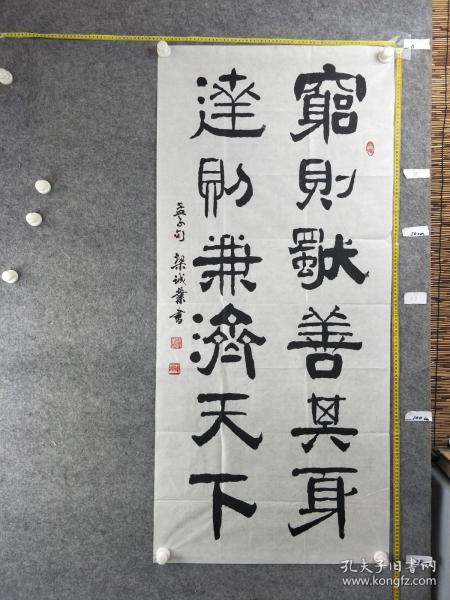 窮則獨善其身
達則兼濟天下
孟子句 梁诚業書
孔夫子旧书网
www.kongfz.com